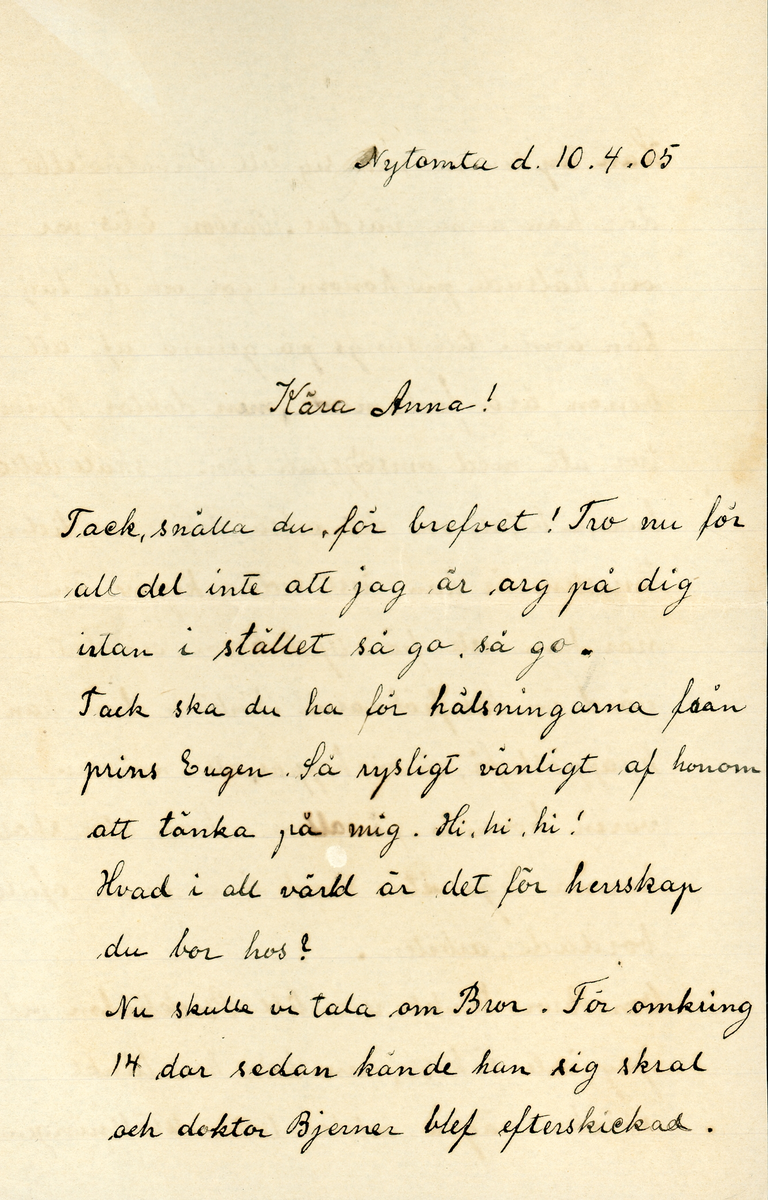 Nytomta d. 10.4.05
Kära Anna!
Tack, snälla du, för brefvet! Tro nu för
all del inte att jag är arg på dig
utan i stället så go, så go.
Tack ska du ha för hälsningarna från
prins Eugen. Så rysligt vänligt af honom
att tänka på mig. Hi, hi, hi!
Hvad i all värld är det för herrskap
du bor hos?
Nu skulle vi tala om Bror. För omkring
14 dar sedan kände han sig skral
och doktor Bjerner blef efterskickad.